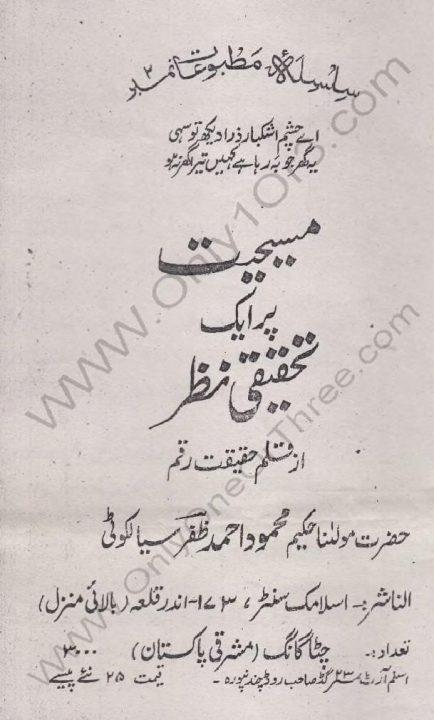 سلسلۂ مطبوعات نمبر ۳
اے چشم اشکبار ذرا دیکھ تو سہی
یہ گھر جو بہ رہا ہے کہیں تیرا گھر نہ ہو
مسیحیت
پر ایک
تحقیقی نظر
از قلم حقیقت رقم
حضرت مولٰنا حکیم محمود احمد ظفر سیالکوٹی
الناشر:۔ اسلامک سنٹر، ۱۷۳-اندر قلعہ (بالائی منزل)
تعداد:۔ چٹاگانگ (مشرقی پاکستان) ۳۰۰۰
قیمت ۲۵ نئے پیسے
www.Only1Or3.com
www.OnlyOneorThree.com